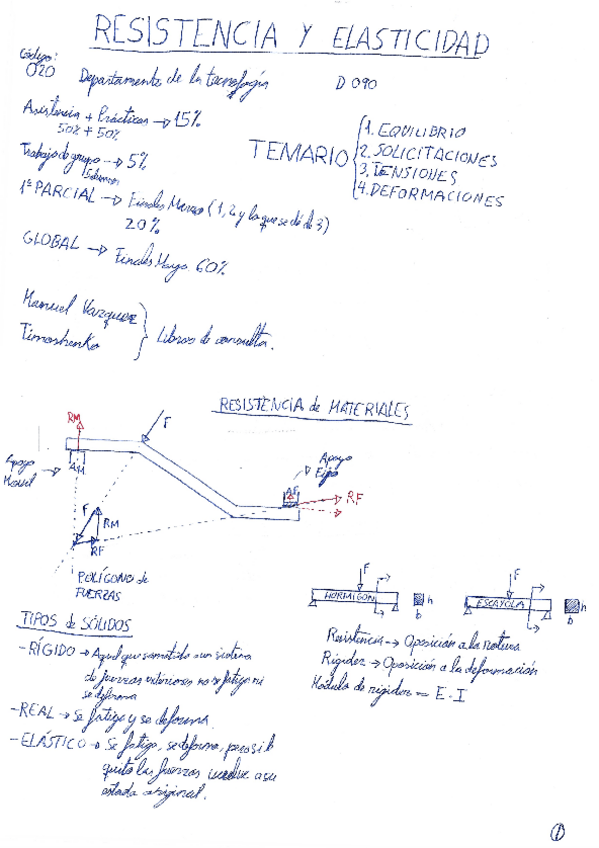 RESISTENCIA Y ELASTICIDAD
Código:
020
Departamento de la tecnología
D 090
Asistencia + Prácticas → 15%
50% + 50%
Trabajo de grupo → 5%
1er PARCIAL → Finales Marzo (1, 2 y lo que se dé de 3)
20%
GLOBAL → Finales Mayo 60%
TEMARIO
1. EQUILIBRIO
2. SOLICITACIONES
3. TENSIONES
4. DEFORMACIONES
Manuel Vazquez
Timoshenko
Libros de consulta.
RESISTENCIA de MATERIALES
RM
F
Apoyo
AM
Apoyo
AF
RF
F
RM
RF
POLÍGONO de
FUERZAS
F
HORMIGÓN
h
b
F
ESCAYOLA
h
b
Resistencia → Oposición a la rotura
Rigidez → Oposición a la deformación
Módulo de rigidez = E·I
TIPOS de SÓLIDOS
- RÍGIDO → Aquel que sometido a un sistema
de fuerzas exteriores no se fatiga ni
se deforma
- REAL → Se fatiga y se deforma.
- ELÁSTICO → Se fatiga, se deforma, pero si le
quito las fuerzas vuelve a su
estado original.
1